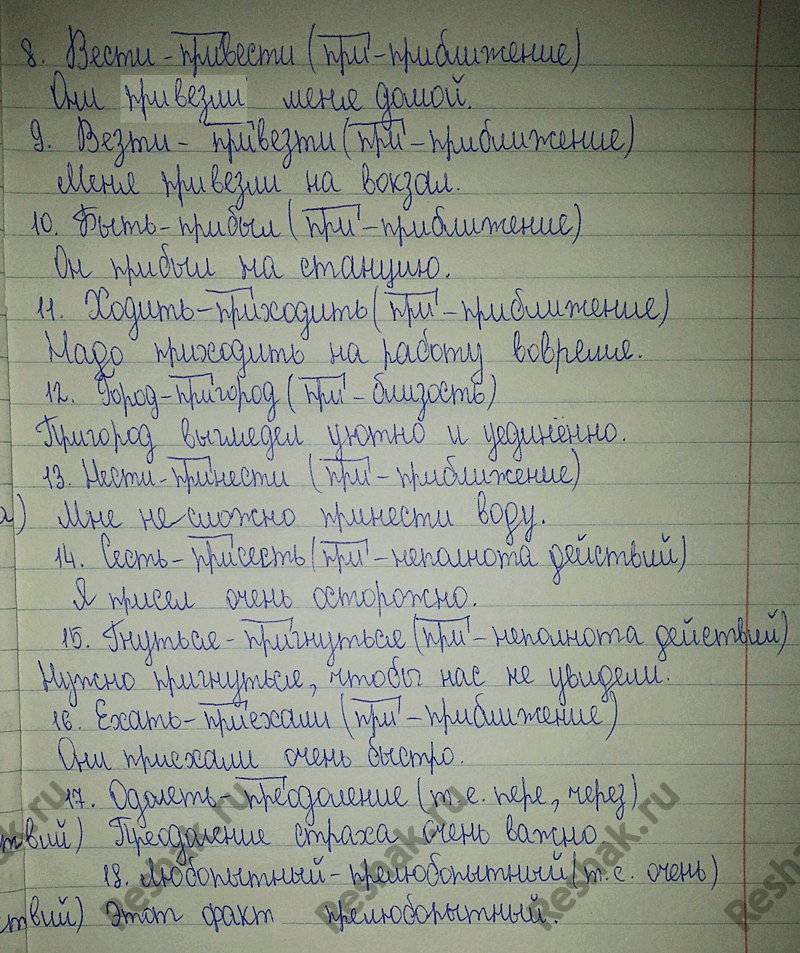 8. Вести - привести (при - приближение)
Они привезли меня домой.
9. Везти - привезти (при - приближение)
Меня привезли на вокзал.
10. Быть - прибыл (при - приближение)
Он прибыл на станцию.
11. Ходить - приходить (при - приближение)
Надо приходить на работу вовремя.
12. Город - пригород (при - близость)
Пригород выглядел уютно и уединённо.
13. Нести - принести (при - приближение)
а) Мне не сложно принести воду.
14. Сесть - присесть (при - неполнота действий)
Я присел очень осторожно.
15. Гнуться - пригнуться (при - неполнота действий)
Нужно пригнуться, чтобы нас не увидели.
16. Ехать - приехали (при - приближение)
Они приехали очень быстро.
17. Одолеть - преодоление (т.е. пере, через)
ствий) Преодоление страха очень важно.
18. Любопытный - прелюбопытный (т.е. очень)
ствий) Этот факт прелюбопытный.
Reshak.ru Reshak.ru Reshak.ru Reshak.ru